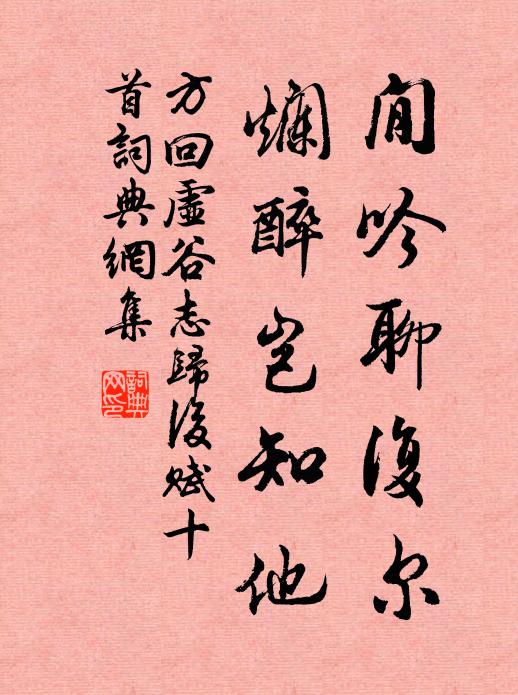 闲吟聊復尔
爛醉岂知他
方回虛谷志歸後賦十
首詞典網集
詞典
网印